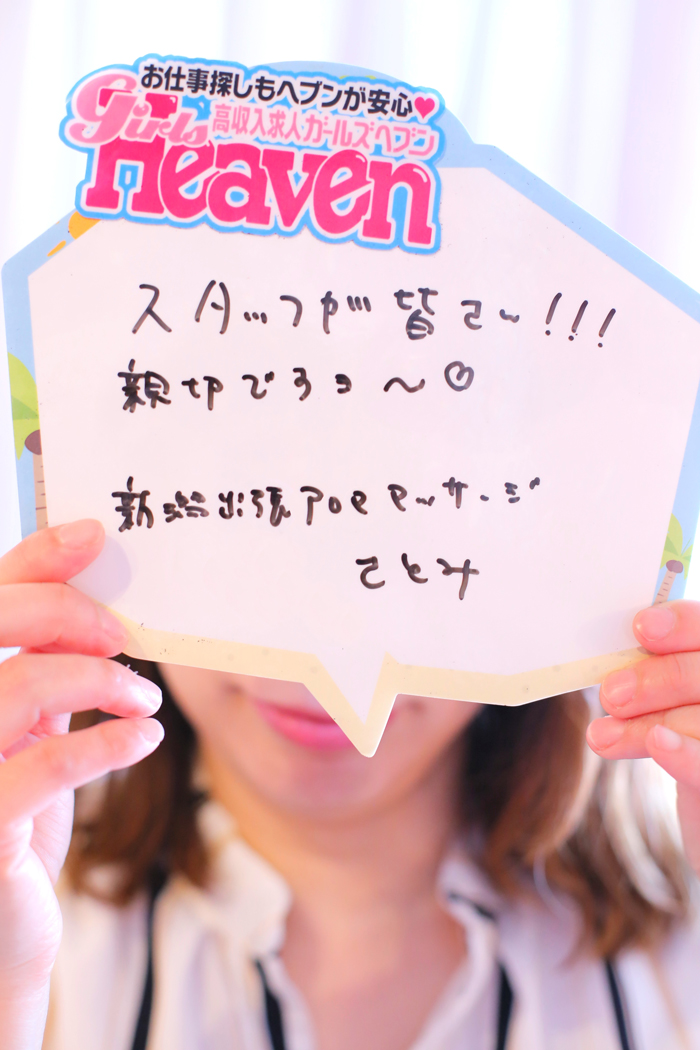 お仕事探しもヘブンが安心♥
高収入求人ガールズヘブン
Girls
Heaven
スタッフが皆さん!!!
親切ですヨ〜♡
新潟出張アロママッサージ
ことみ